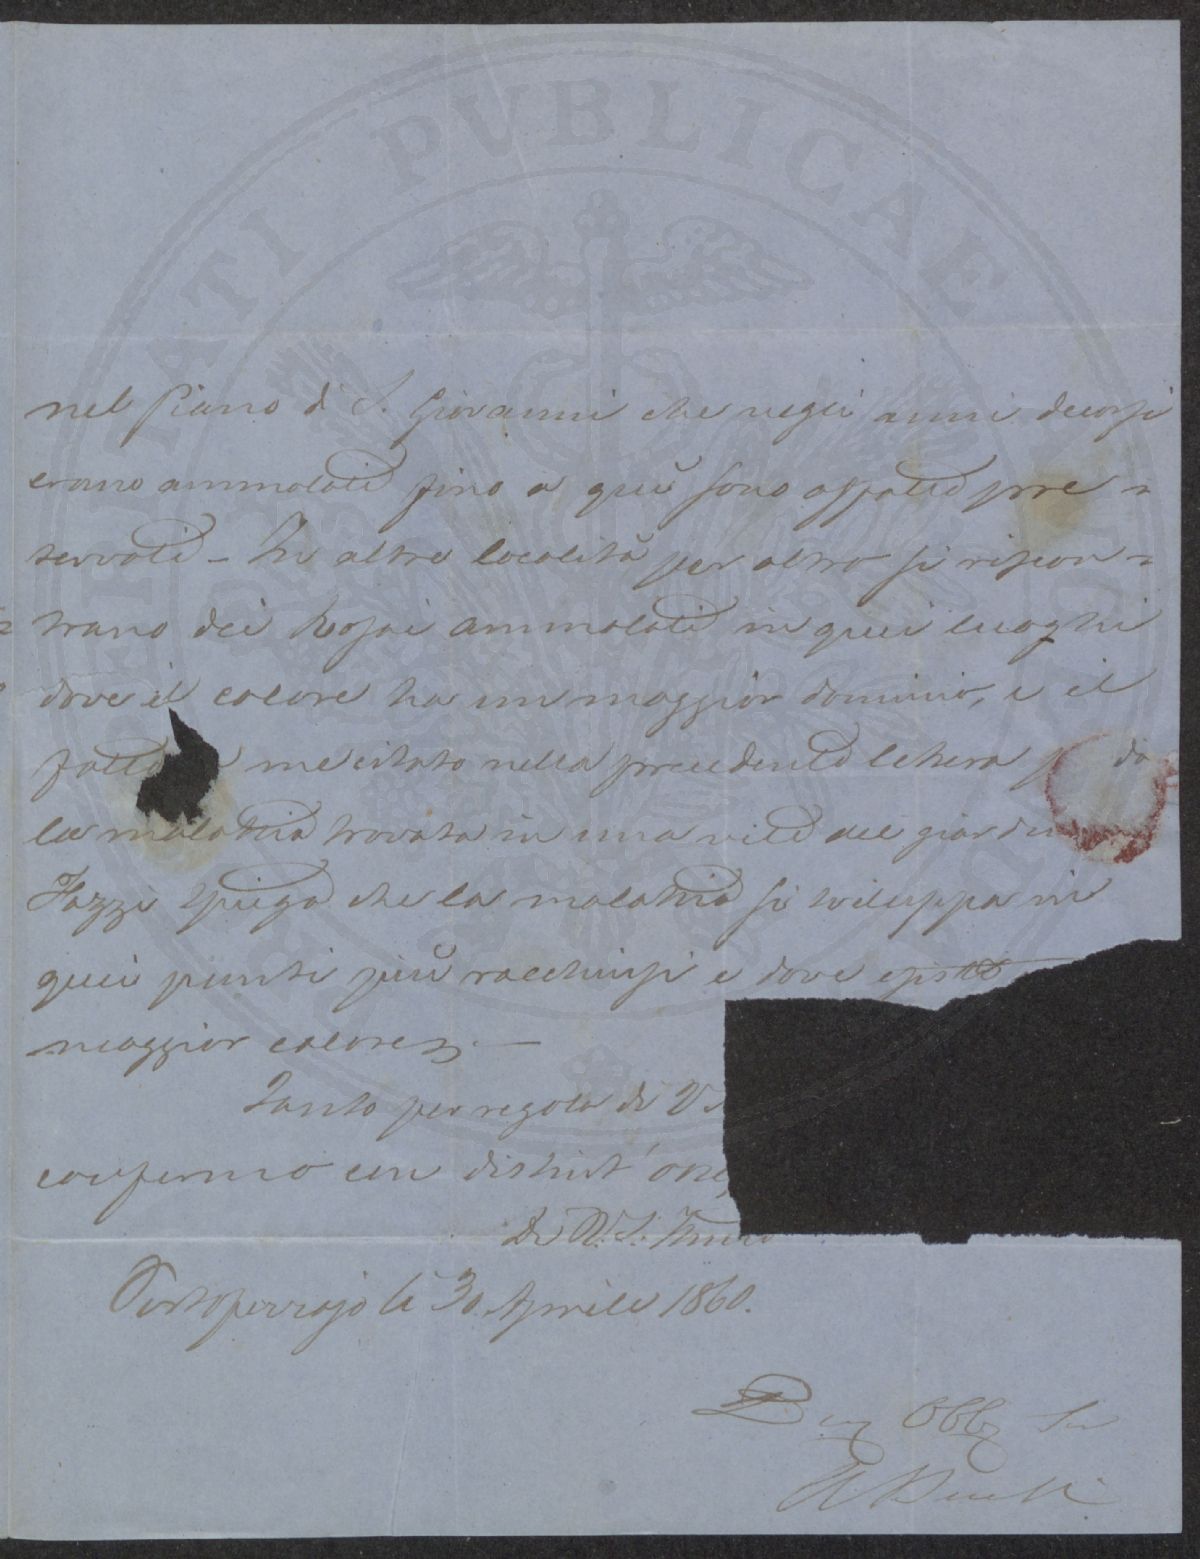 nel Piano di S. Giovanni che negli anni decorsi
erano ammalati fino a quì sono affatto pre-
servati - In altre località per altro si riscon-
trano dei Rosai ammalati in quei luoghi
dove il calore ha un maggior dominio, e il
fatto me citato nella precedente lettera
la malattia trovata in una vite del
Fazzi spiega che la malattia si sviluppa in
quei punti più racchiusi e dove esiste
maggior calore. -
Tanto per regola di V S
confermo con distint'
Di V. S.
Portoferrajo li 30. Aprile 1860.
Obb
PVBLICAE